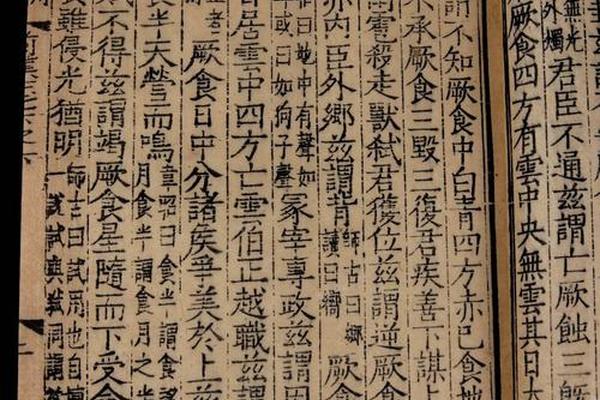 無光
外燭
君臣不通兹謂亡厥蝕三既
厥食四方有雲中央無雲其日大
不知厥食中白青四方赤已食地
不承厥食三毀三復君疾善下謀上
雨雹殺走獸弑君獲位兹謂逆厥食
内臣外鄉兹謂背
師古曰鄉
讀曰嚮
厥食
曰地中有聲如
或曰如狗子聲
冢宰專政兹謂因
日居雲中四方亡雲伯正越職兹謂
者
厥食日中分諸矦爭美於上兹
食半天營而鳴
韋昭曰食半謂食
月食半謂食月之半
不得兹謂竭厥食星隨而下受命
雖侵光猶明
師古曰試用也自擅
一説試與弑同謂